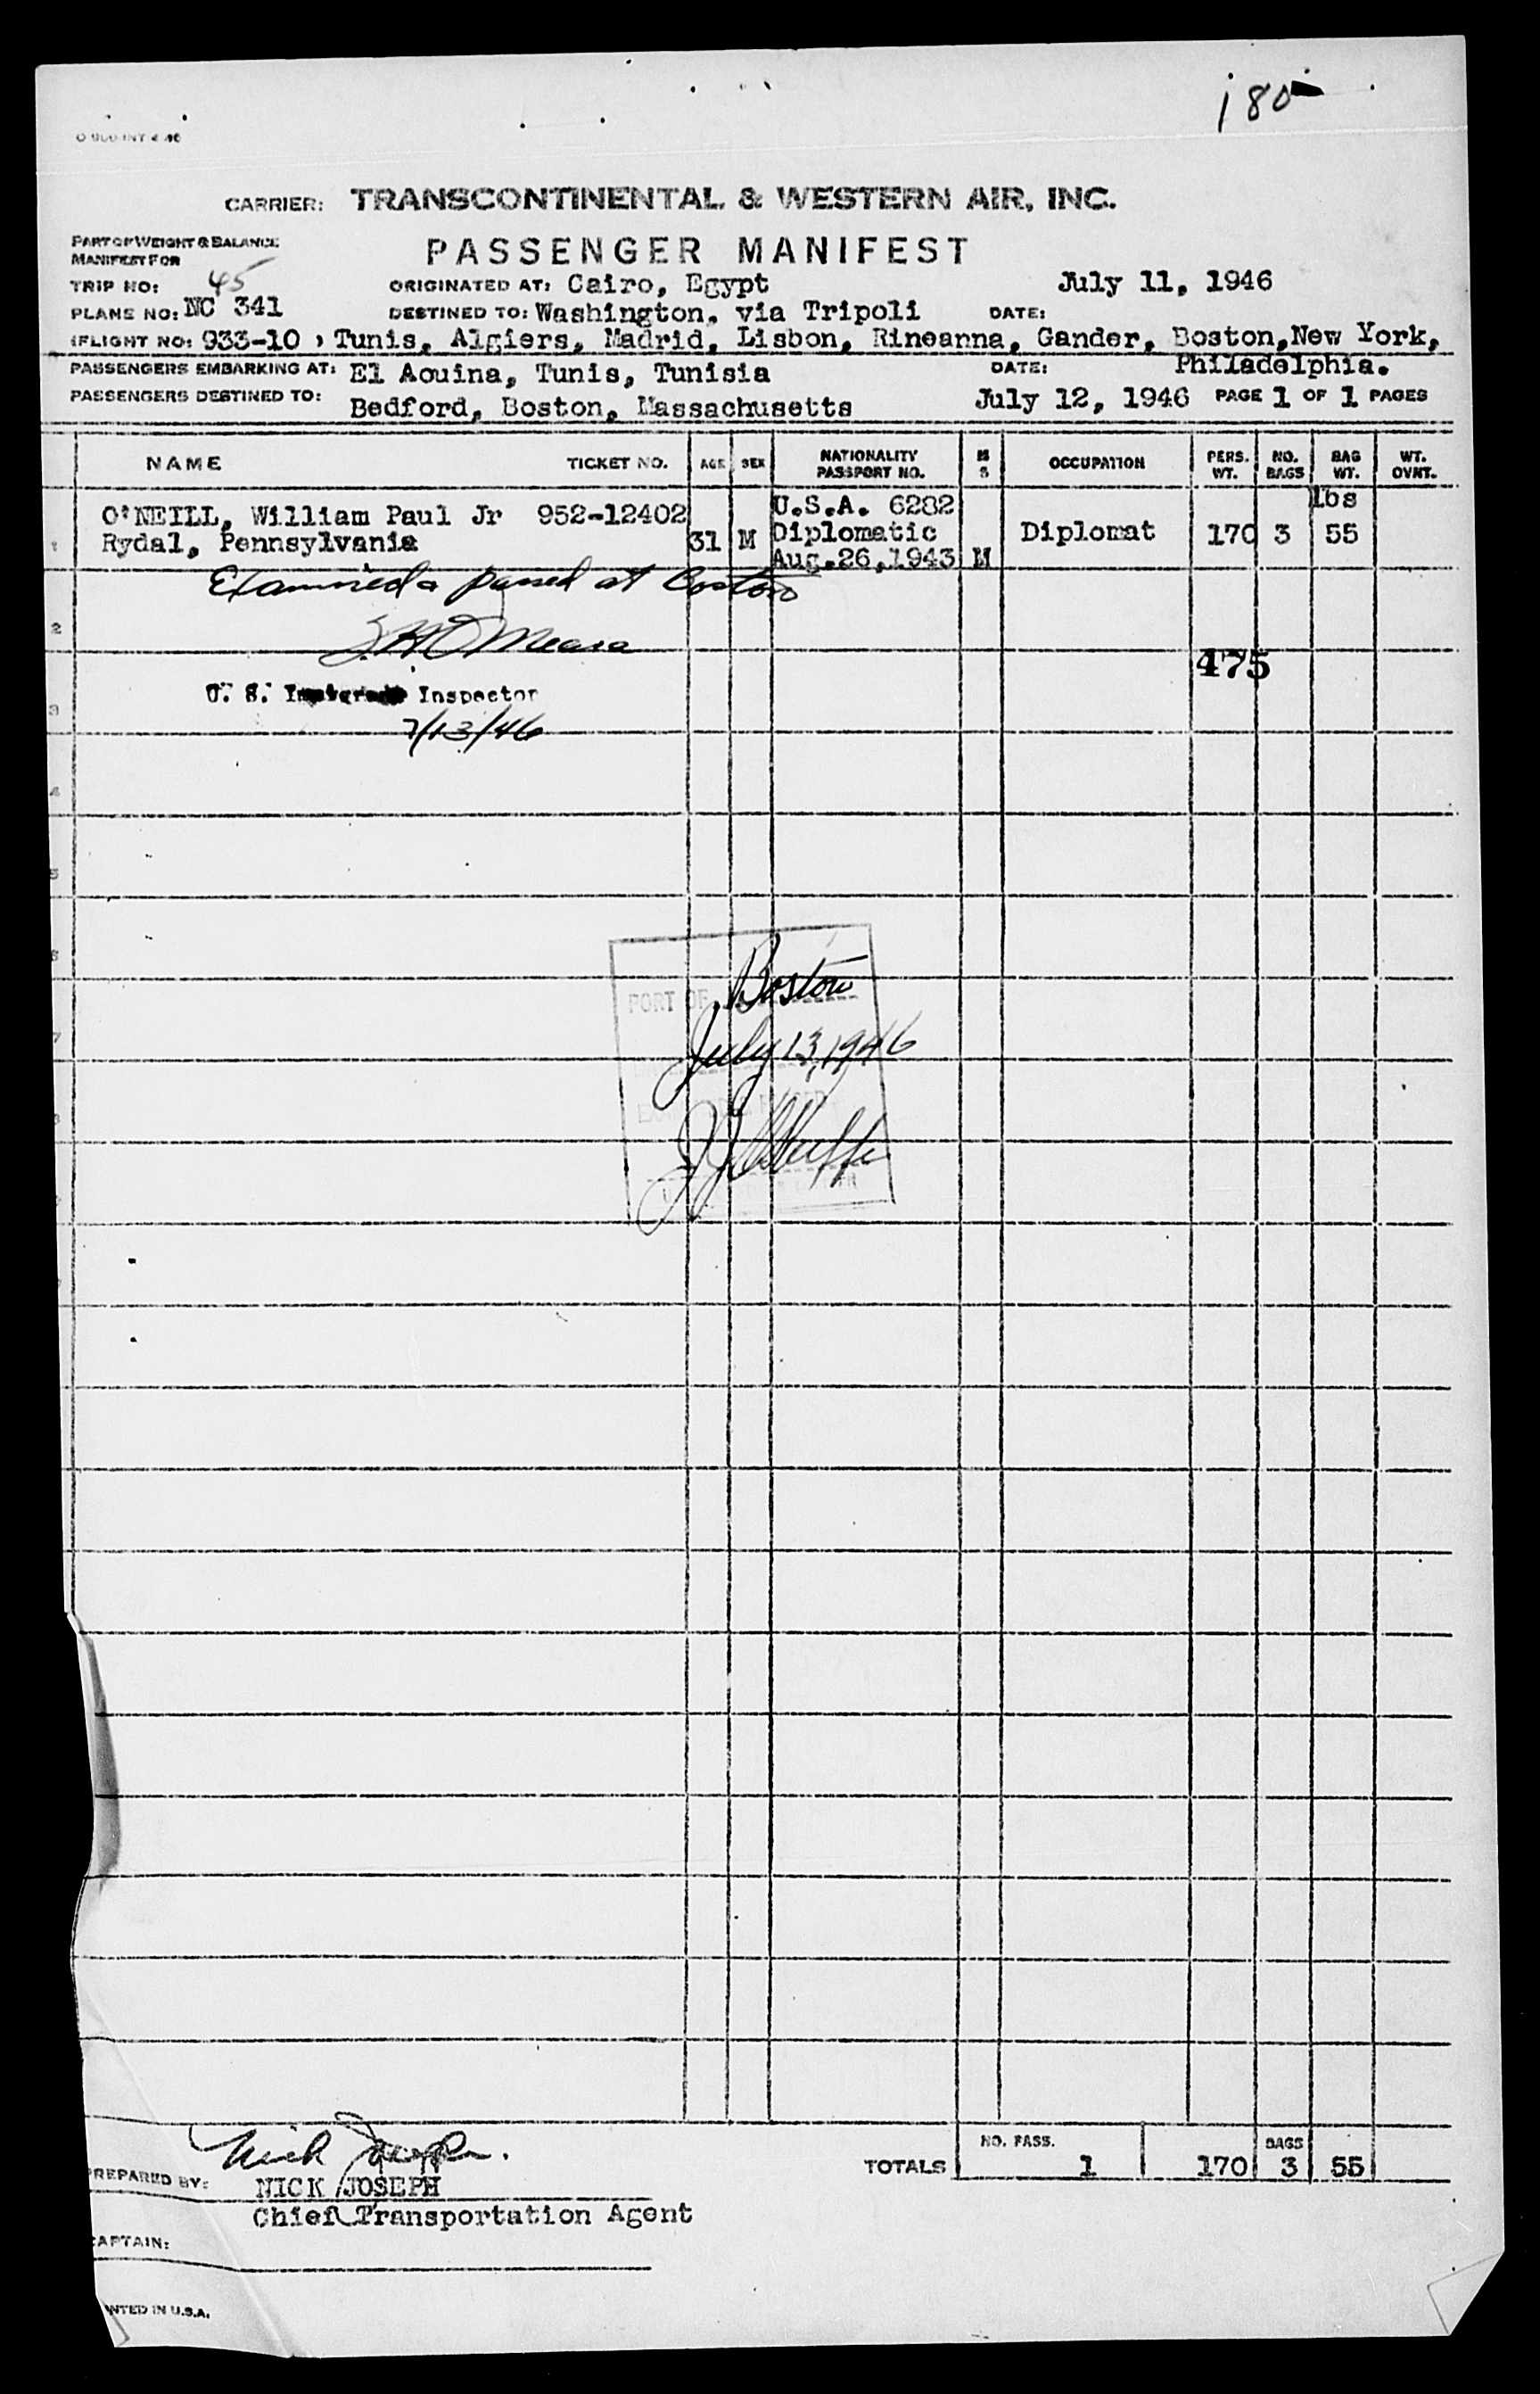 180
CARRIER: TRANSCONTINENTAL & WESTERN AIR, INC.
PART OF WEIGHT & BALANCE
MANIFEST FOR
PASSENGER MANIFEST
TRIP NO: 45 ORIGINATED AT: Cairo, Egypt July 11, 1946
PLANE NO: NC 341 DESTINED TO: Washington, via Tripoli DATE:
(FLIGHT NO: 933-10 ) Tunis, Algiers, Madrid, Lisbon, Rineanna, Gander, Boston,New York,
Philadelphia.
PASSENGERS EMBARKING AT: El Aouina, Tunis, Tunisia DATE:
PASSENGERS DESTINED TO: Bedford, Boston, Massachusetts July 12, 1946 PAGE 1 OF 1 PAGES
NAME TICKET NO. AGE SEX NATIONALITY PASSPORT NO. M S OCCUPATION PERS. WT. NO. BAGS BAG WT. WT. OVNT.
lbs
1 O'NEILL, William Paul Jr 952-12402 U.S.A. 6282
Rydal, Pennsylvania 31 M Diplomatic Diplomat 170 3 55
Aug.26,1943 M
Examined & passed at Boston
2
475
U. S. Inspector
3
7/13/46
4
5
6
PORT OF Boston
7
July 13, 1946
8
NO. PASS. BAGS
TOTALS 1 170 3 55
Nick Joseph.
PREPARED BY: NICK JOSEPH
Chief Transportation Agent
CAPTAIN:
NTED IN U.S.A.